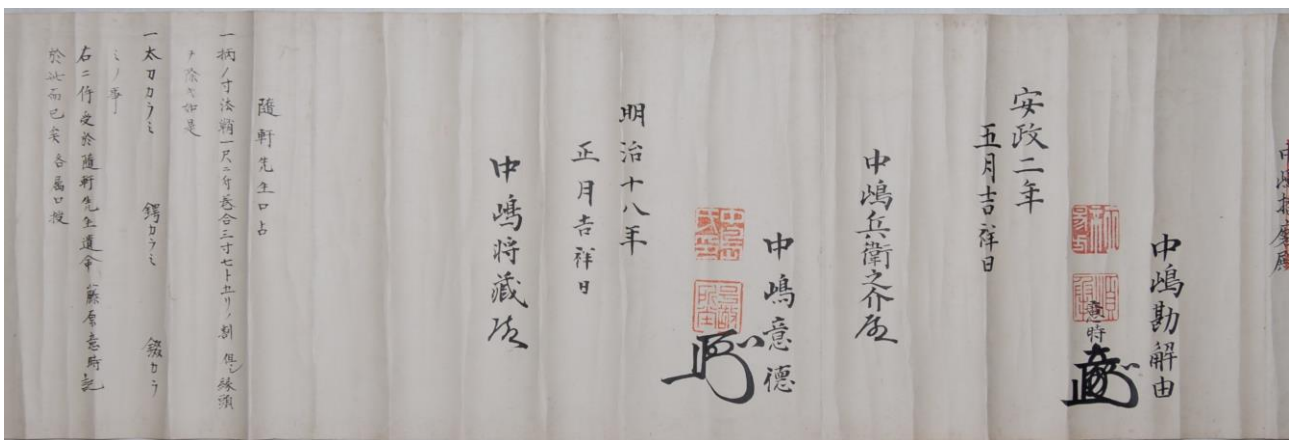 中嶋勘解由
意時
安政二年
五月吉祥日
中嶋兵衛之介殿
中嶋意徳
明治十八年
正月吉祥日
中嶋将蔵殿
随軒先生口占
一柄ノ寸法鞘一尺二分巻合三寸七ト五リノ割 但シ縁頭
ヲ除ク如是
一太刀カラミ 鍔カラミ 錣カラ
ミノ事
右二件受於随軒先生遺命 藤原意時記
於此而已矣各属口授